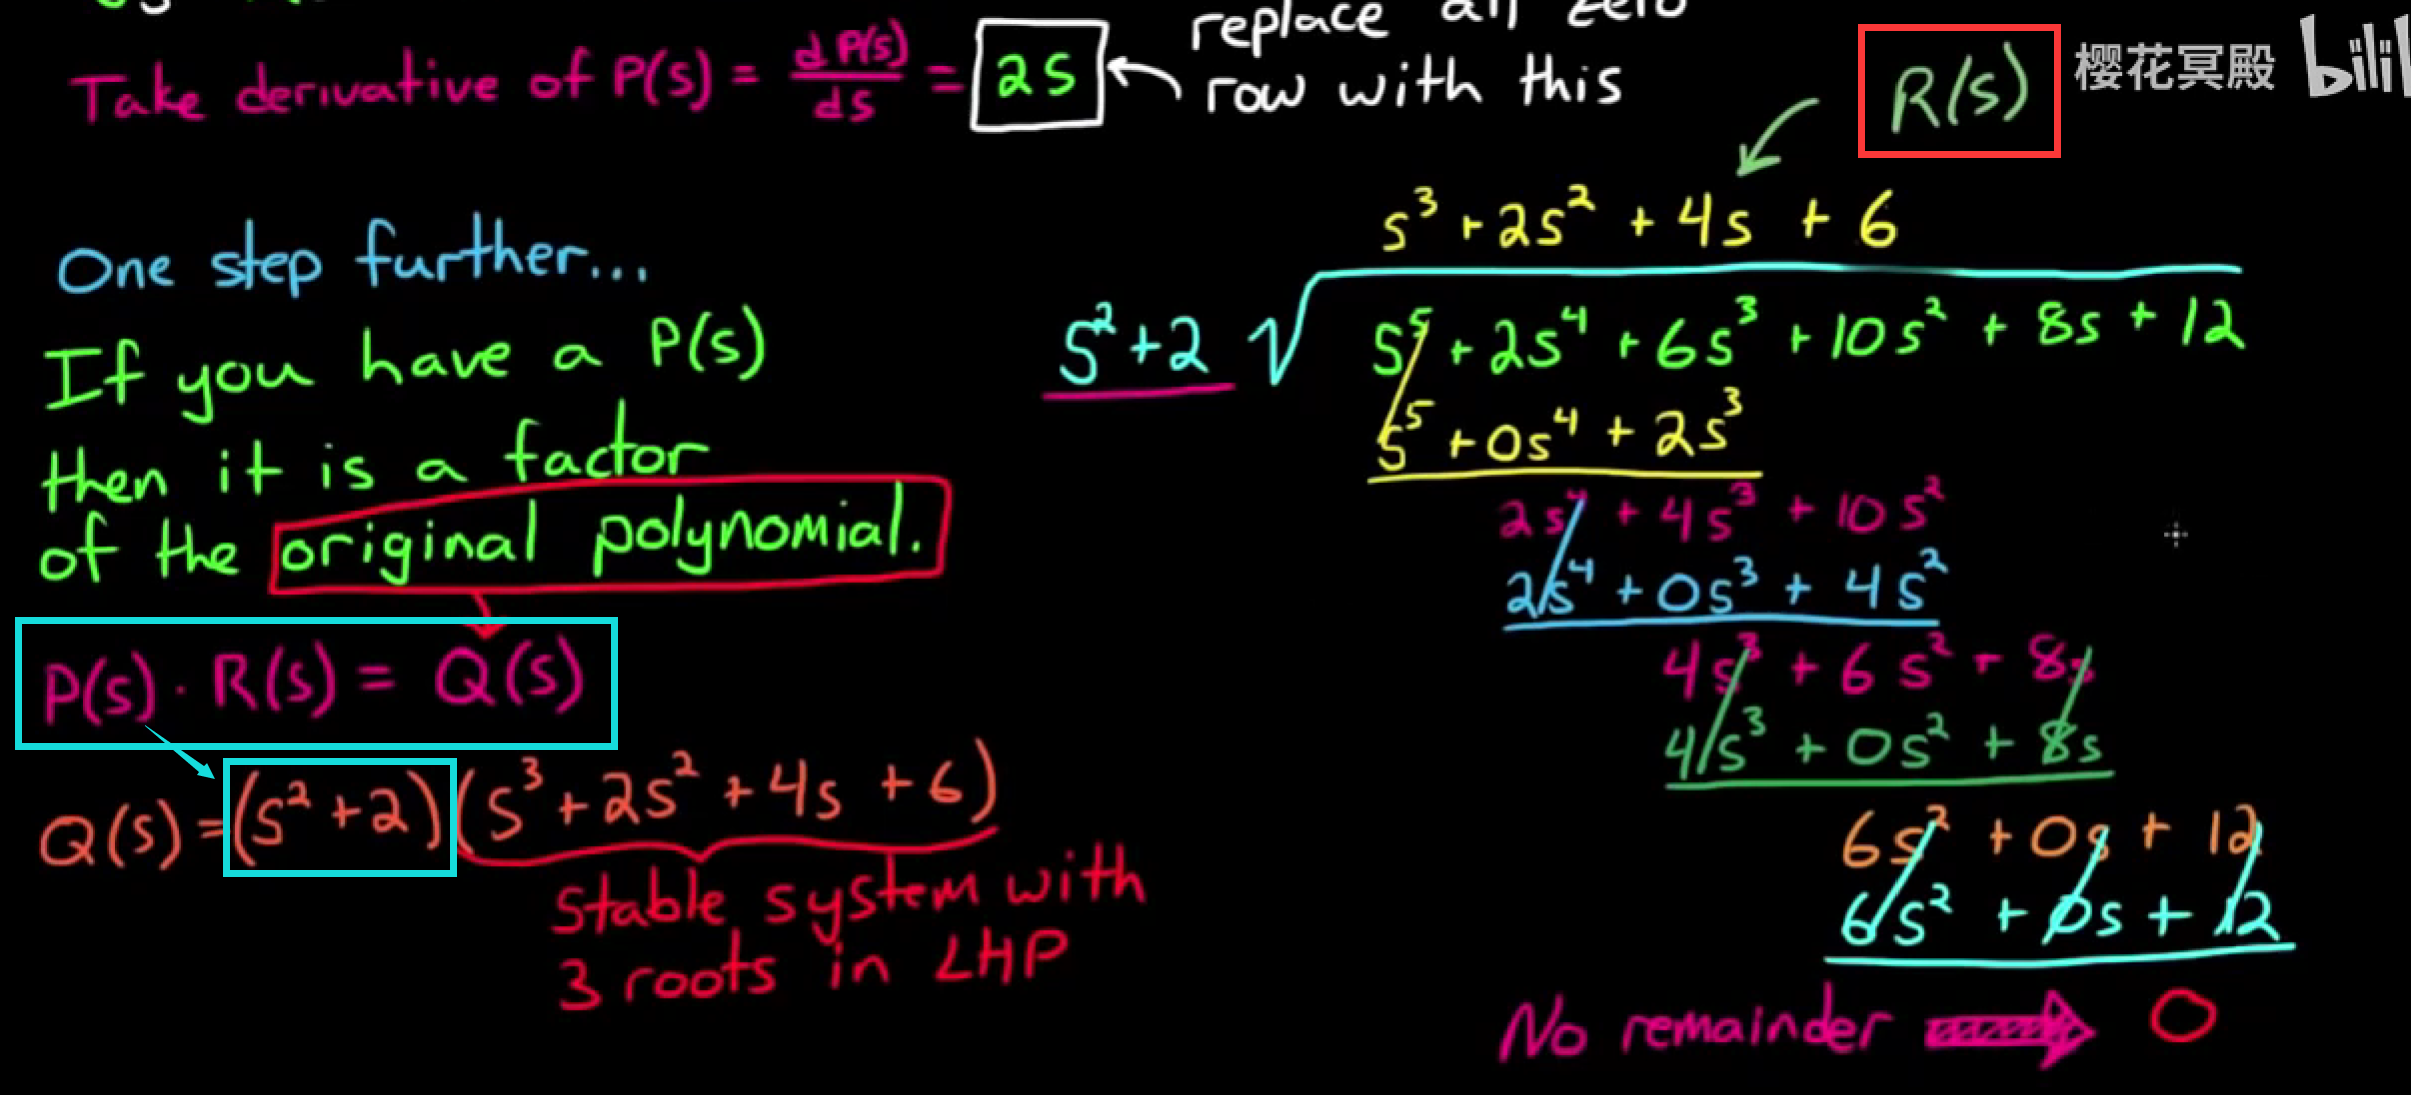 replace all zero
Take derivative of P(s) = dP(s)/ds = 2s
row with this
R(s)
樱花冥殿 bilil
One step further...
If you have a P(s)
then it is a factor
of the original polynomial.
P(s) · R(s) = Q(s)
Q(s) = (s² + 2)(s³ + 2s² + 4s + 6)
stable system with
3 roots in LHP
s³ + 2s² + 4s + 6
s² + 2 √ s⁵ + 2s⁴ + 6s³ + 10s² + 8s + 12
s⁵ + 0s⁴ + 2s³
2s⁴ + 4s³ + 10s²
2s⁴ + 0s³ + 4s²
4s³ + 6s² + 8s
4s³ + 0s² + 8s
6s² + 0s + 12
6s² + 0s + 12
No remainder 0